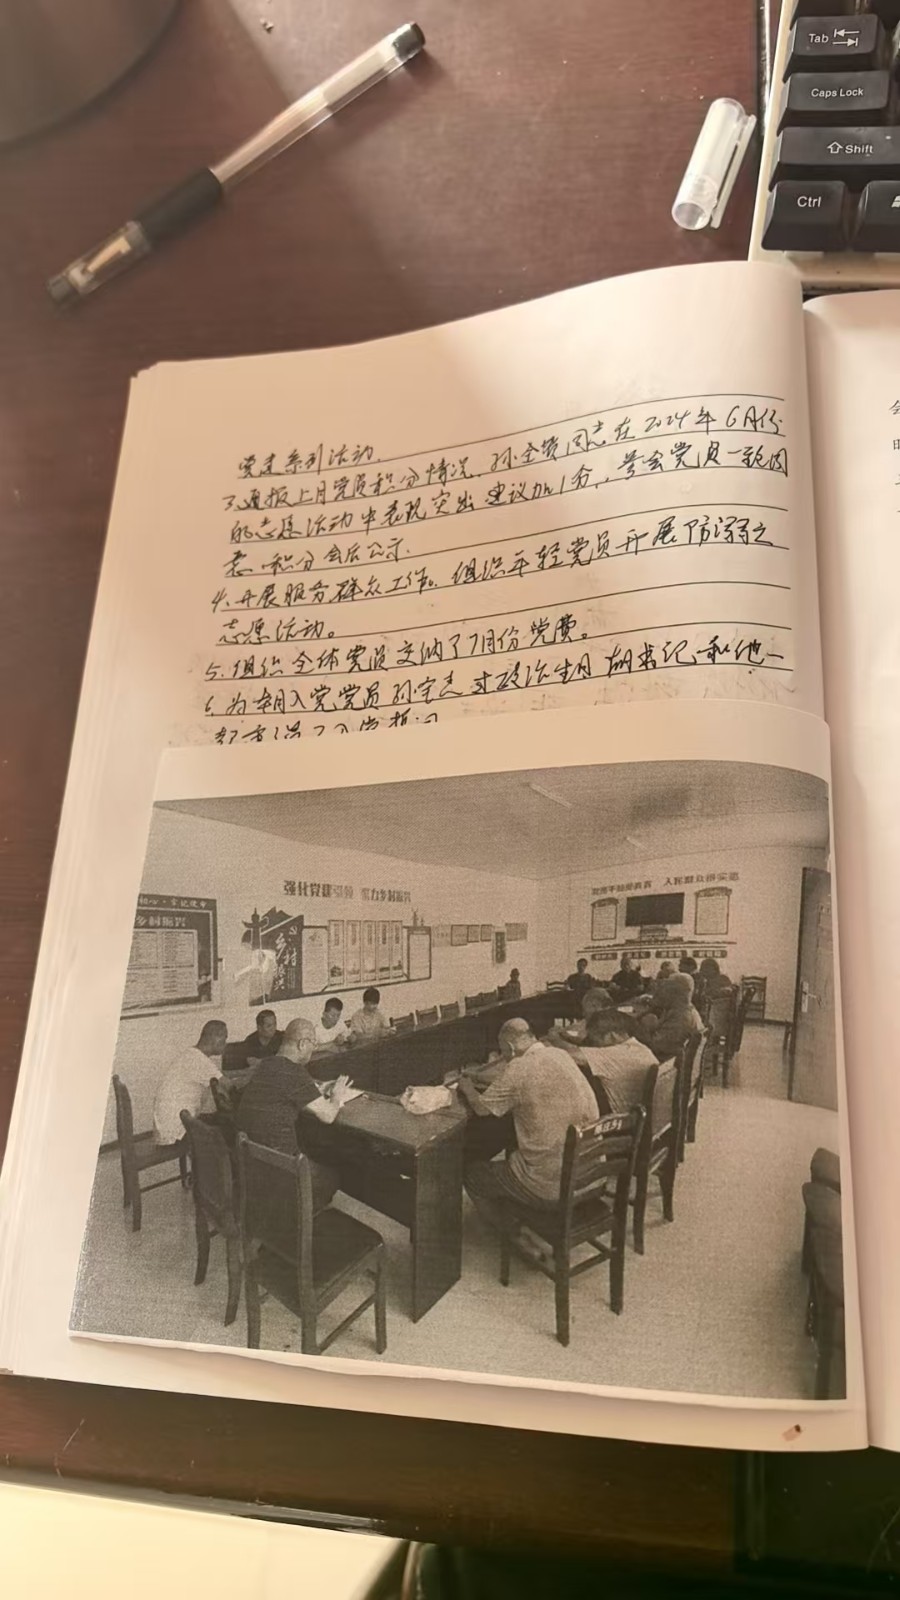 Tab
Caps Lock
Shift
Ctrl
党建系列活动.
3.通报上月党员积分情况、孙全赞同志在2024年6月份
的志愿活动中表现突出建议加1分,,参会党员一致同
意.积分会后公示.
4、开展服务群众工作。组织年轻党员开展防溺之
志愿活动。
5.组织全体党员交纳了7月份党费。
6.为本月入党党员孙宝 过政治生日 胡书记和他一
强化党建引领 聚力乡村振兴
人民群众得实惠
初心·牢记使命
乡村振兴
会